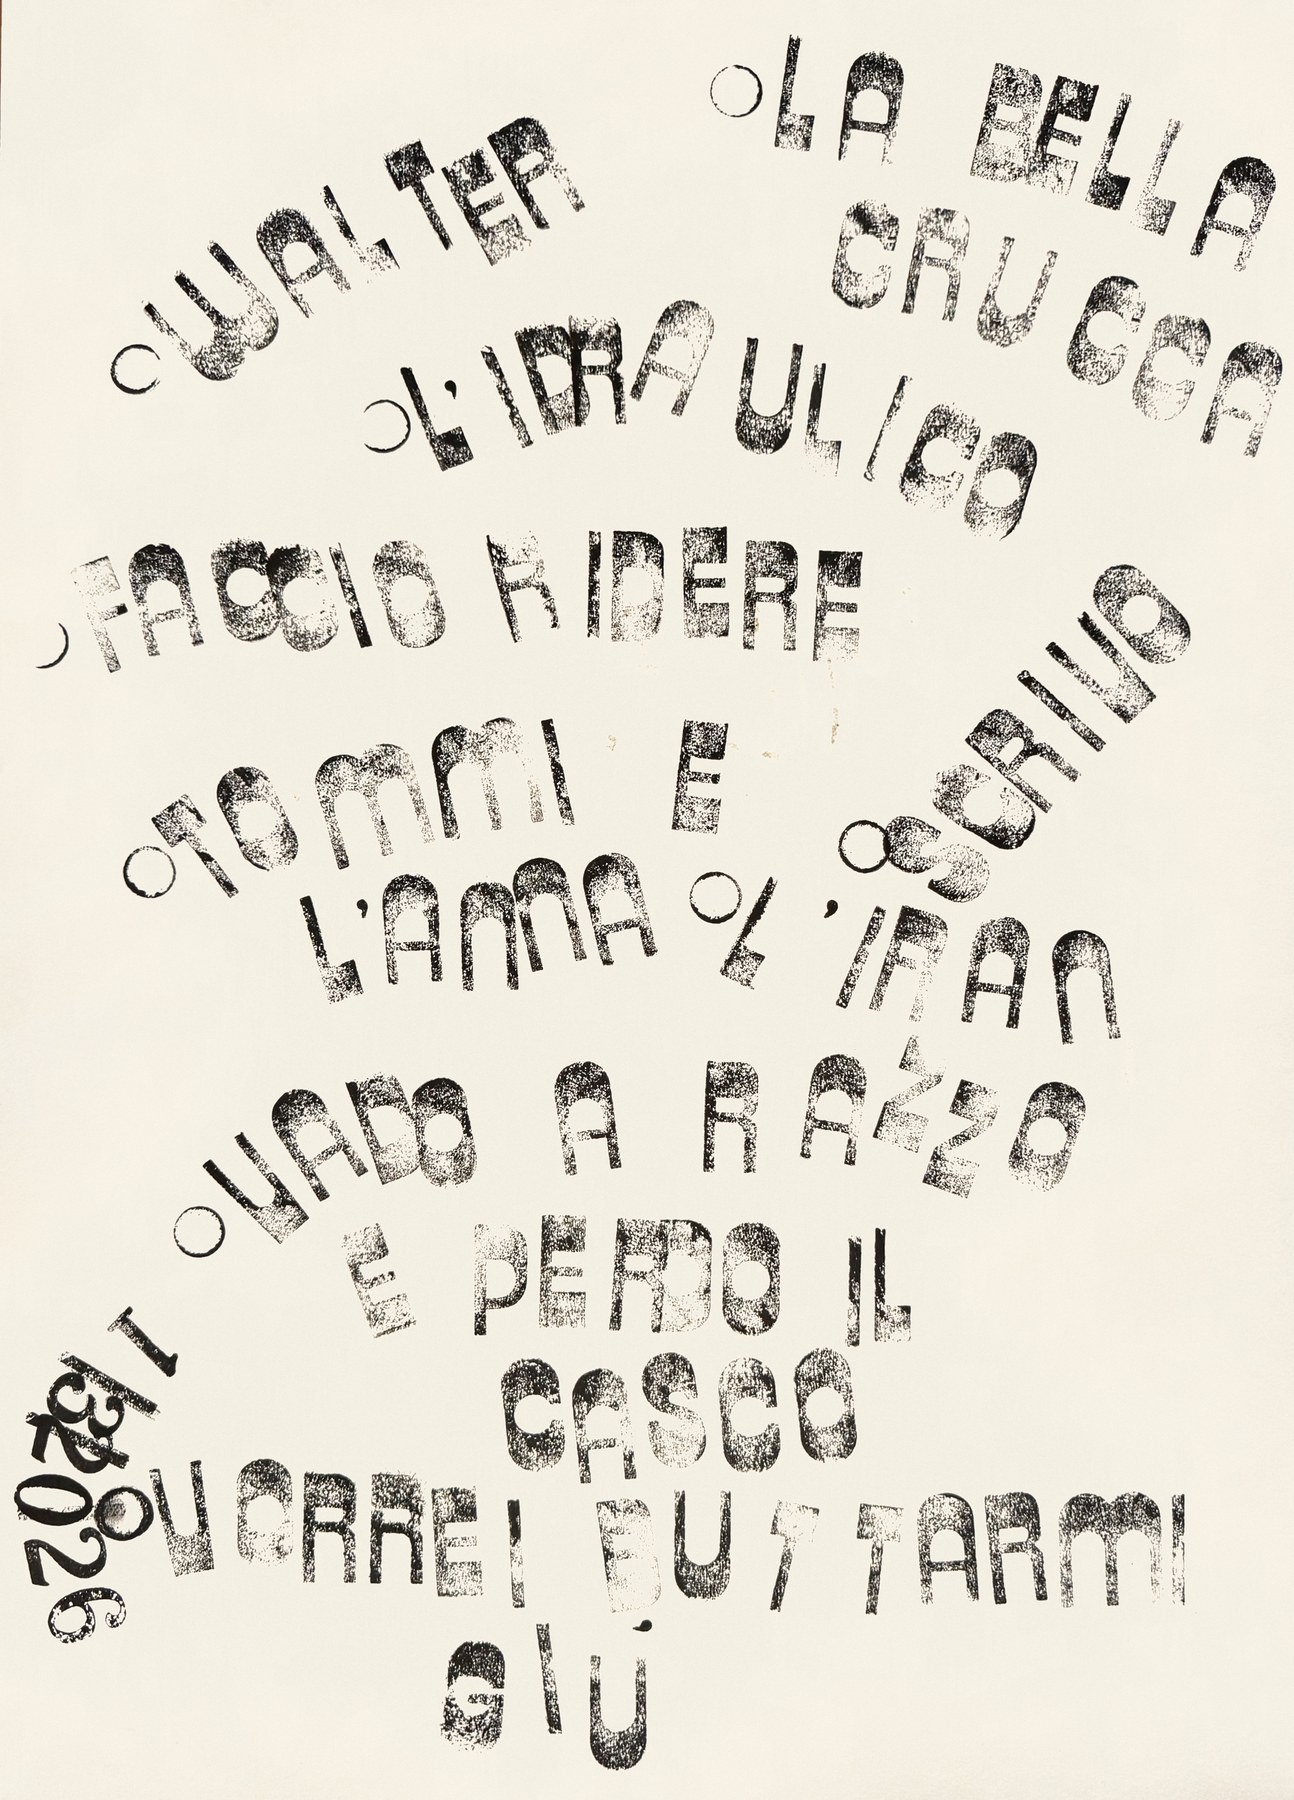 WALTER
LA BELLA
CRUCCA
L'IDRAULICO
FACCIO RIDERE
SCRIVO
TOMMI E
L'ANNA
L'IRAN
VADO A RAZZO
E PERDO IL
CASCO
VORREI BUTTARMI
GIÙ
2026